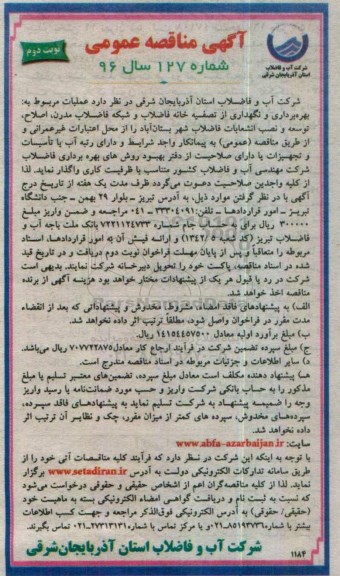 آگهی مناقصه عمومی
شماره ۱۲۷ سال ۹۶
نوبت دوم
شرکت آب و فاضلاب
استان آذربایجان شرقی
شرکت آب و فاضلاب استان آذربایجان شرقی در نظر دارد عملیات مربوط به:
بهره‌برداری و نگهداری از تصفیه خانه فاضلاب و شبکه فاضلاب مدرن، اصلاح،
توسعه و نصب انشعابات فاضلاب شهر بستان‌آباد را از محل اعتبارات غیرعمرانی و
از طریق مناقصه (عمومی) به پیمانکار واجد شرایط و دارای رتبه آب یا تأسیسات
و تجهیزات یا دارای صلاحیت از دفتر بهبود روش های بهره برداری فاضلاب
شرکت مهندسی آب و فاضلاب کشور متناسب با ظرفیت کاری واگذار نماید. لذا
از کلیه واجدین صلاحیت دعوت می‌گردد ظرف مدت یک هفته از تاریخ درج
آگهی با در نظر گرفتن موارد ذیل، به آدرس تبریز - بلوار ۲۹ بهمن - جنب دانشگاه
تبریز - امور قراردادها - تلفن: ۳۳۳۰۴۰۹۱-۰۴۱ مراجعه و ضمن واریز مبلغ
۳۰۰۰۰۰ ریال برای به حساب جام شماره ۷۲۲۱۱۲۴۷۳۳ بانک ملت باجه آب و
فاضلاب تبریز (کد شعبه ۱۳۴۲/۶) و ارائه فیش آن به امور قراردادها، اسناد
مربوطه را متعاقباً پس از پایان مهلت فراخوان نوبت دوم دریافت و در تاریخ قید
شده در اسناد مناقصه، پاکت خود را تحویل دبیرخانه شرکت نمایند. بدیهی است
شرکت در رد یا قبول هر یک از پیشنهادات مختار خواهد بود هزینه آگهی از برنده
مناقصه اخذ خواهد شد.
الف) به پیشنهادهای فاقد امضاء، مشروط، مخدوش و پیشنهاداتی که بعد از انقضاء
مدت مقرر در فراخوان واصل شود، مطلقاً ترتیب اثر داده نخواهد شد.
ب) مبلغ برآورد اولیه معادل ۱۴۱۵۴۴۵۷۵۰۰ ریال.
ج) مبلغ سپرده تضمین شرکت در فرآیند ارجاع کار معادل ۷۰۷۷۲۲۸۷۵ ریال می‌باشد.
د) سایر اطلاعات و جزئیات مربوطه در اسناد مناقصه مندرج است.
هـ) پیشنهاد دهنده مکلف است معادل مبلغ سپرده، تضمین‌های معتبر تسلیم یا مبلغ
مذکور را به حساب بانکی شرکت واریز و حسب مورد ضمانت‌نامه یا رسید واریز
وجه را ضمیمه پیشنهاد به شرکت تسلیم نماید به پیشنهادهای فاقد سپرده،
سپرده‌های مخدوش، سپرده های کمتر از میزان مقرر، چک و نظایر آن ترتیب اثر
داده نخواهد شد.
سایت: www.abfa-azarbaijan.ir
با توجه به اینکه این شرکت در نظر دارد که فرآیند کلیه مناقصات آتی خود را از
طریق سامانه تدارکات الکترونیکی دولت به آدرس www.setadiran.ir برگزار
نماید. لذا از کلیه مناقصه‌گران اعم از اشخاص حقیقی و حقوقی درخواست می‌شود
که نسبت به ثبت نام و دریافت گواهی امضاء الکترونیکی بسته به ماهیت خود
(حقیقی/ حقوقی) به آدرس الکترونیکی فوق‌الذکر مراجعه و جهت کسب اطلاعات
بیشتر با شماره ۸۵۱۹۳۷۳۱-۰۲۱ و یا مرکز تماس با شماره ۲۷۳۱۳۱۳۱-۰۲۱ تماس بگیرند.
شرکت آب و فاضلاب استان آذربایجان‌شرقی
۱۱۸۴